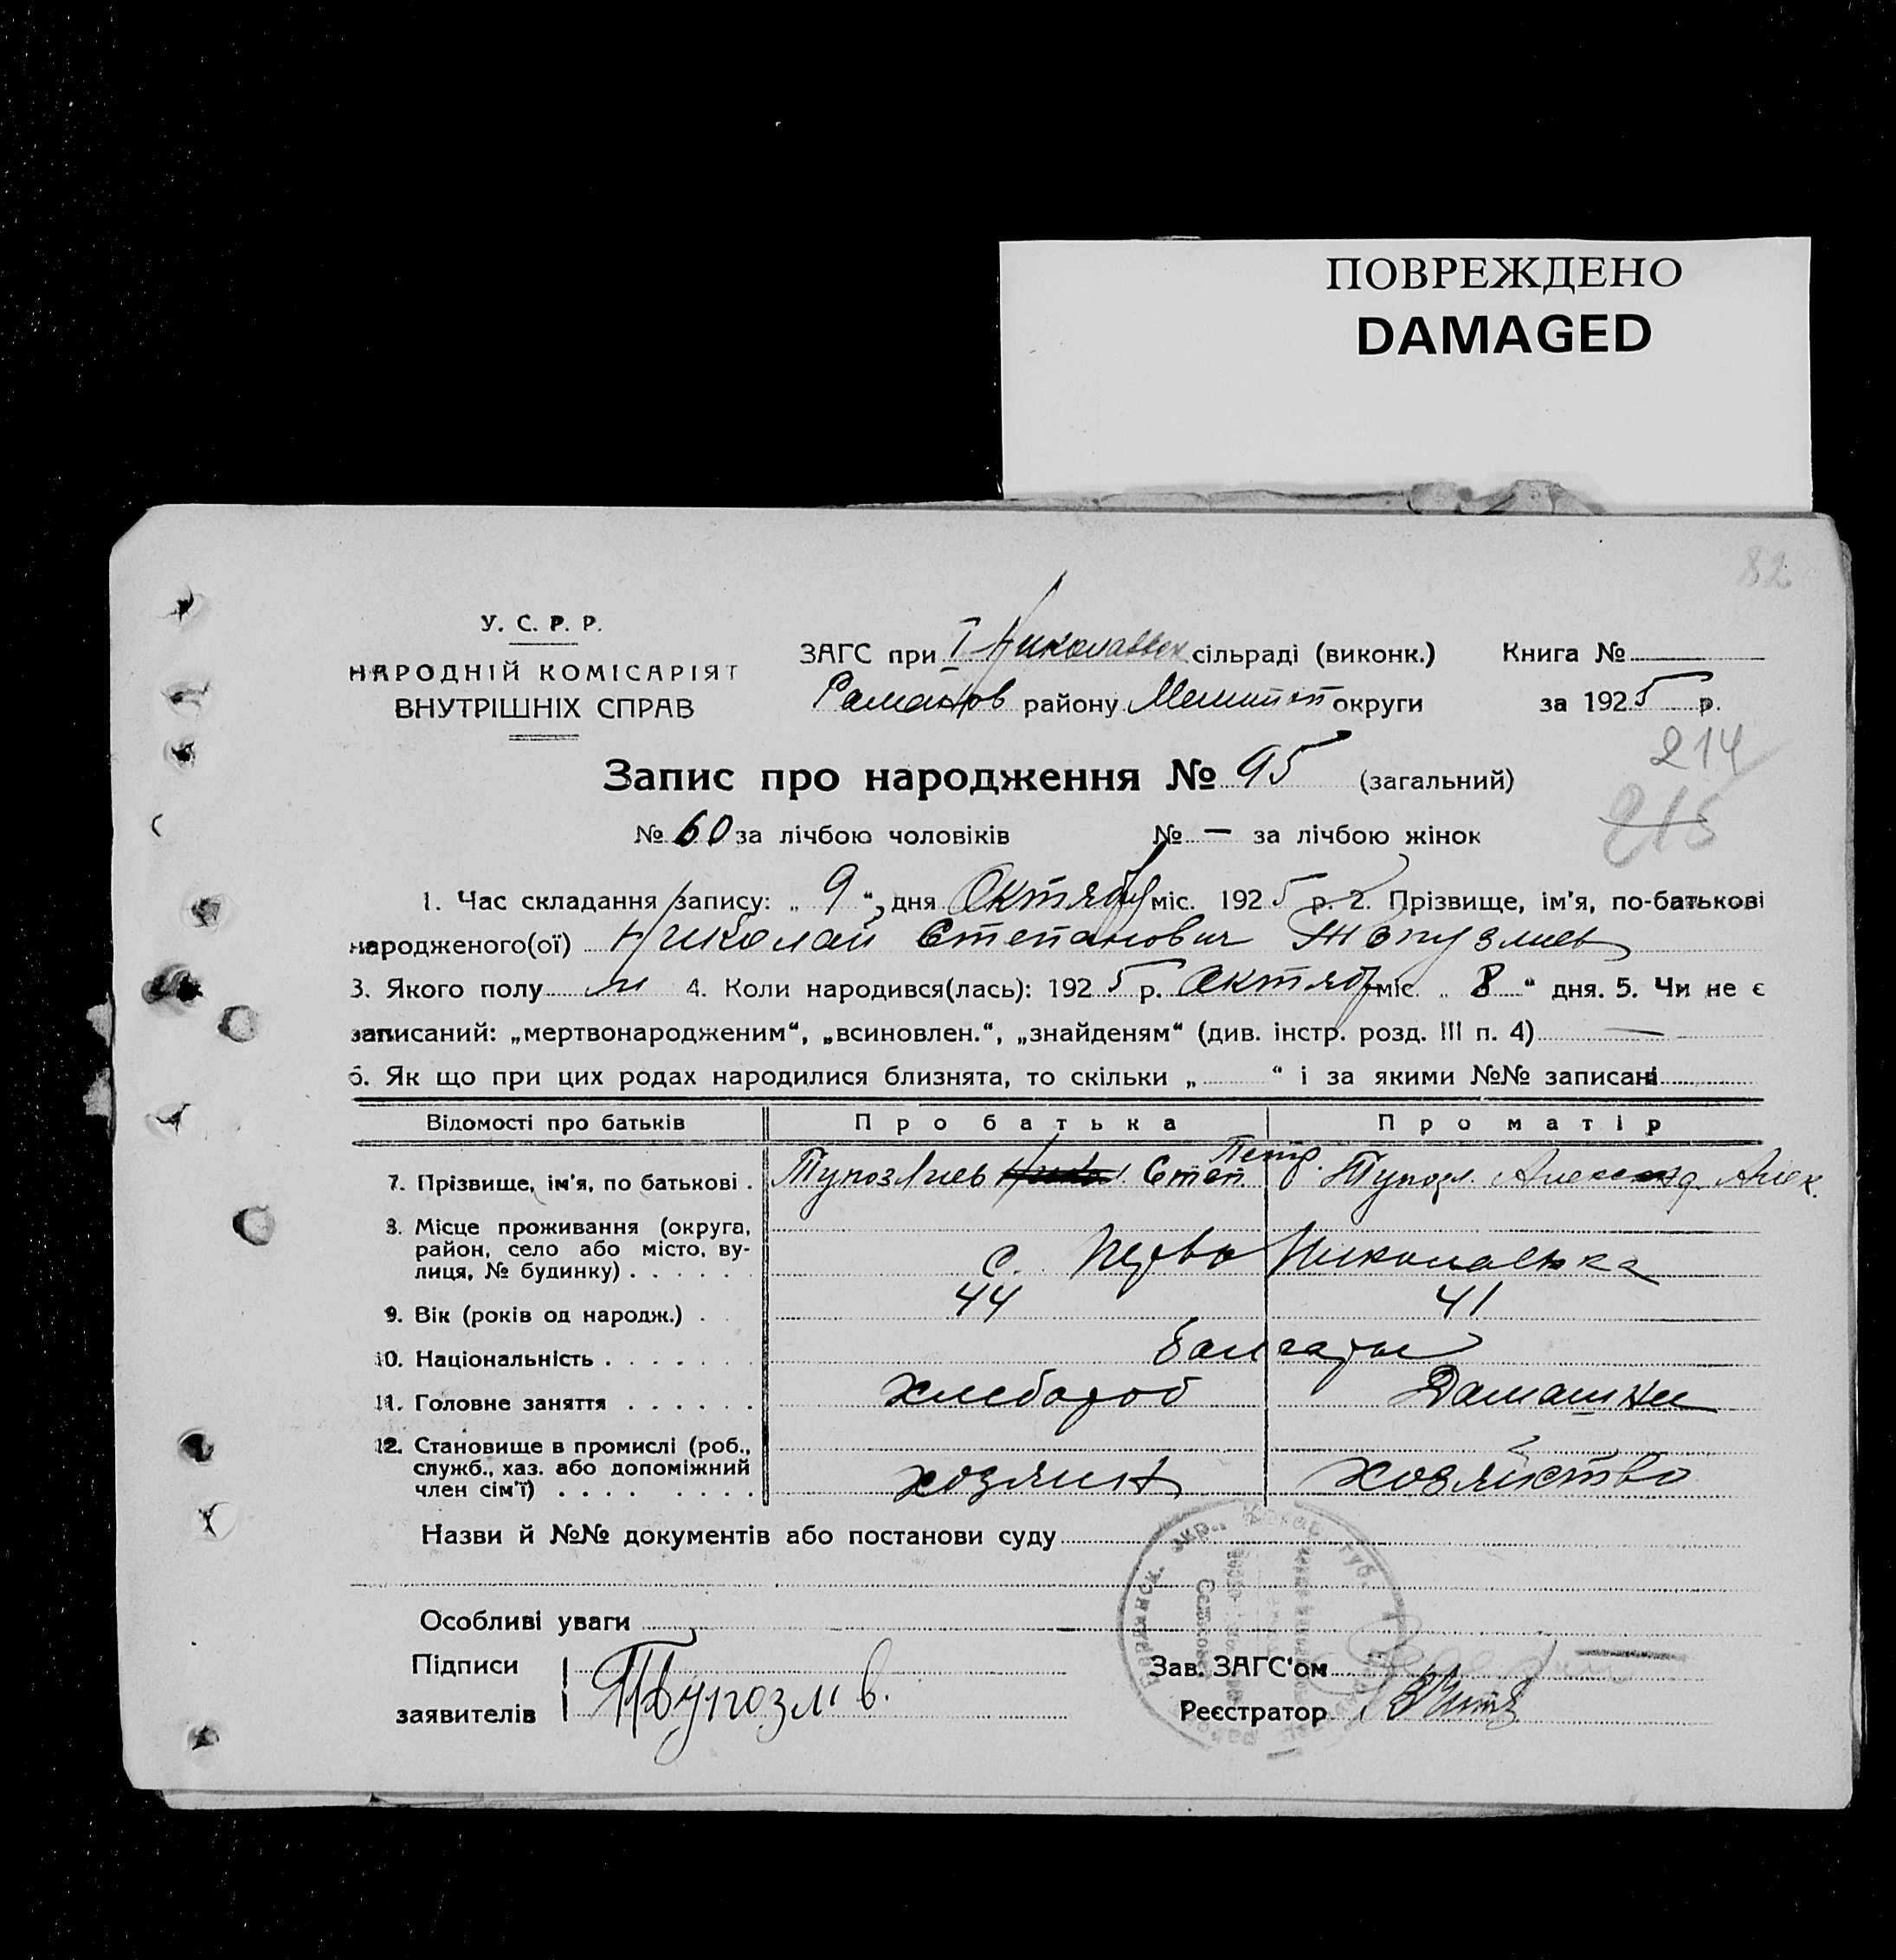 ПОВРЕЖДЕНО
DAMAGED
82
У. С. Р. Р.
НАРОДНІЙ КОМІСАРІЯТ
ВНУТРІШНІХ СПРАВ
ЗАГС при І Николаевск сільраді (виконк.) Книга №
Раманов району Мелитоп округи за 1925 р.
214
215
Запис про народження № 95 (загальний)
№ 60 за лічбою чоловіків № — за лічбою жінок
1. Час складання запису: „ 9 “ дня Октябр міс. 1925 р. 2. Прізвище, ім'я, по-батькові
народженого(ої) Николай Степанович
3. Якого полу м 4. Коли народився(лась): 1925 р. Октябр міс. „ 8 “ дня. 5. Чи не є
записаний: „мертвонародженим“, „всиновлен.“, „знайденям“ (див. інстр. розд. III п. 4) —
6. Як що при цих родах народилися близнята, то скільки „ “ і за якими №№ записані
Відомості про батьків Про батька Про матір
7. Прізвище, ім'я, по батькові . Тупозлиев Степ. Петр. Тупозл. Александ. Алек.
8. Місце проживання (округа, район, село або місто, ву-
лиця, № будинку) . . . . . . с. Перво Николаевка
9. Вік (років од народж.) . . 44 41
10. Національність . . . . . . . Балгары
11. Головне заняття . . . . . . Хлебароб Дамашнее
12. Становище в промислі (роб.,
служб., хаз. або допоміжний
член сім'ї) . . . . . . . . хозяин хозяйство
Назви й №№ документів або постанови суду
Особливі уваги
Підписи
заявителів
Зав. ЗАГС'ом
Реєстратор